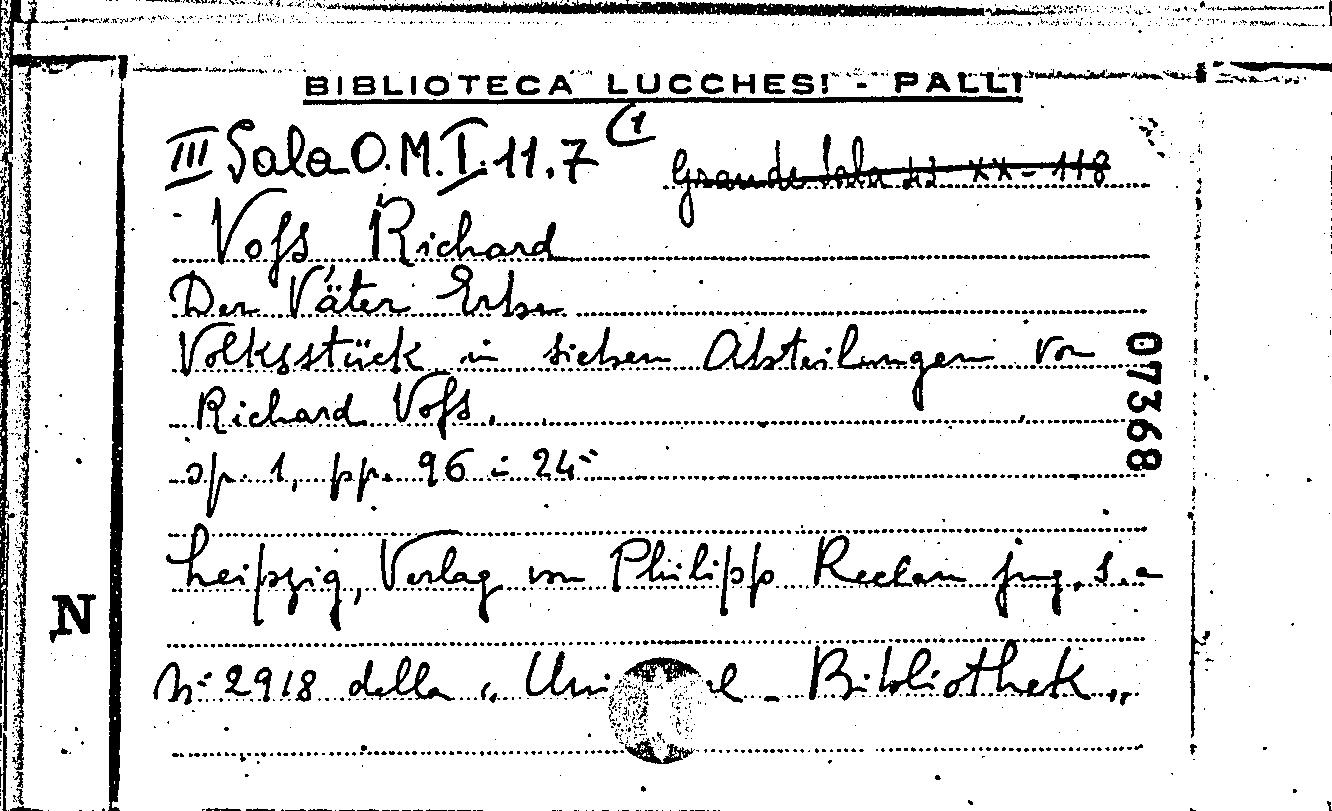 BIBLIOTECA LUCCHESI - PALLI
III Sala O. M. I. 11. 7 (1
Grande Sala 22 XX - 118
Vofs Richard
Der Väter Erbe
Volksstück in sieben Abteilungen von
Richard Vofs.
sp. 1, pp. 96 = 24°
Leipzig, Verlag von Philipp Reclam jung, s.a
N° 2918 della „ Uni l - Bibliothek „
07368
N